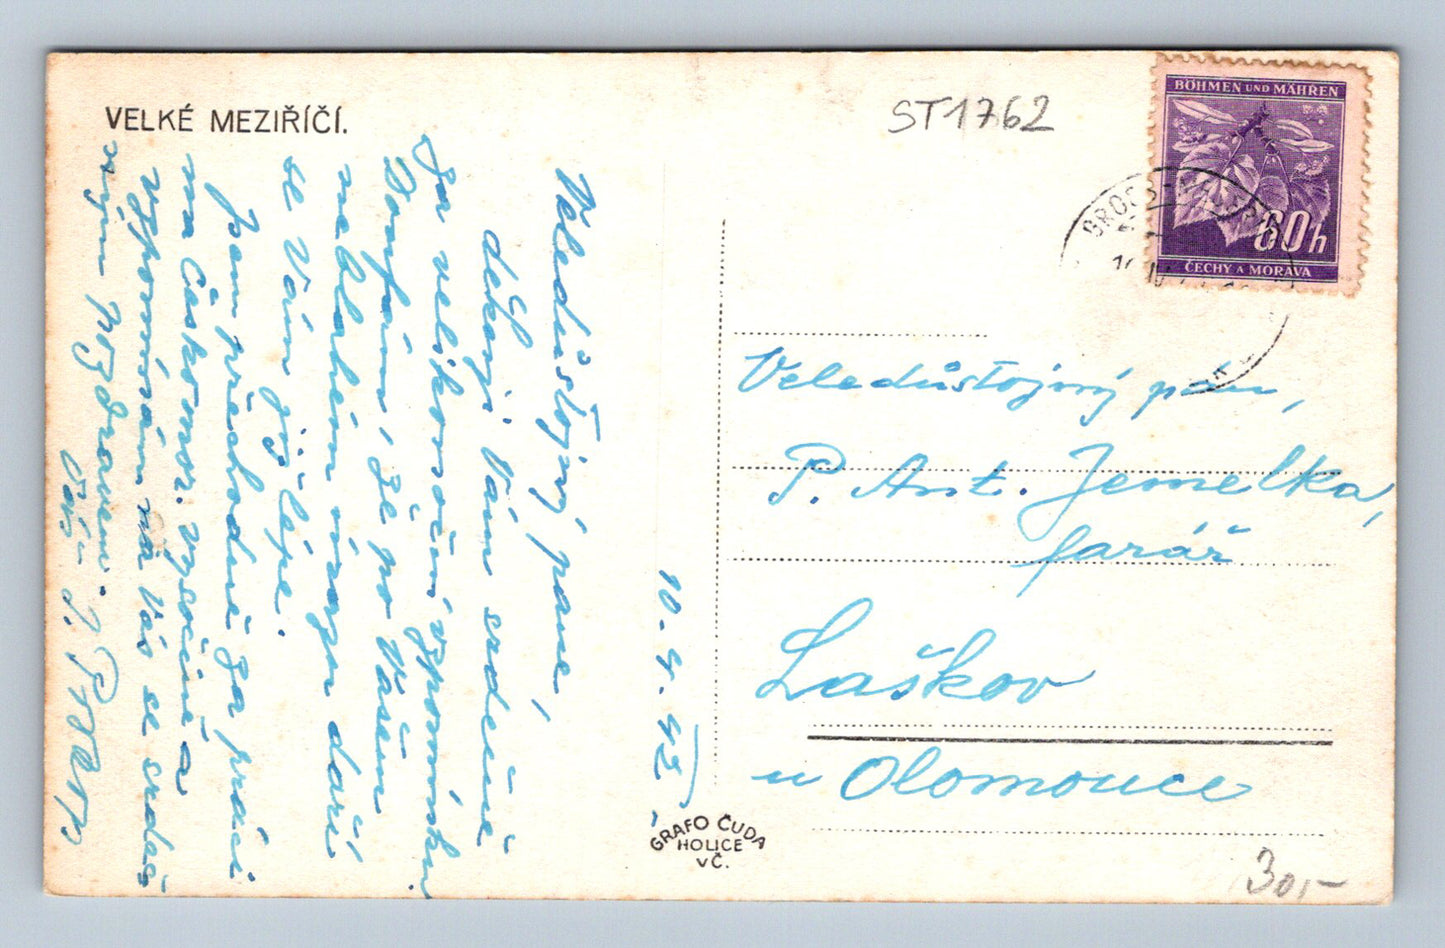 VELKÉ MEZIŘÍČÍ.
ST1762
BÖHMEN UND MÄHREN
60h
ČECHY A MORAVA
10.4.42.
Veledůstojný pane,
děkuji Vám srdečně
za velikonoční vzpomínku.
Doufám, že po Vašem
neblahém úrazu daří
se Vám již lépe.
Jsem přechodně za prací
na Českomor. vysočině a
vzpomínám na Vás se srdeč
ným pozdravem.
Váš J.
Veledůstojný pán,
P. Ant. Jemelka,
farář
Laškov
u Olomouce
GRAFO ČUDA
HOLICE
VČ.
30,-